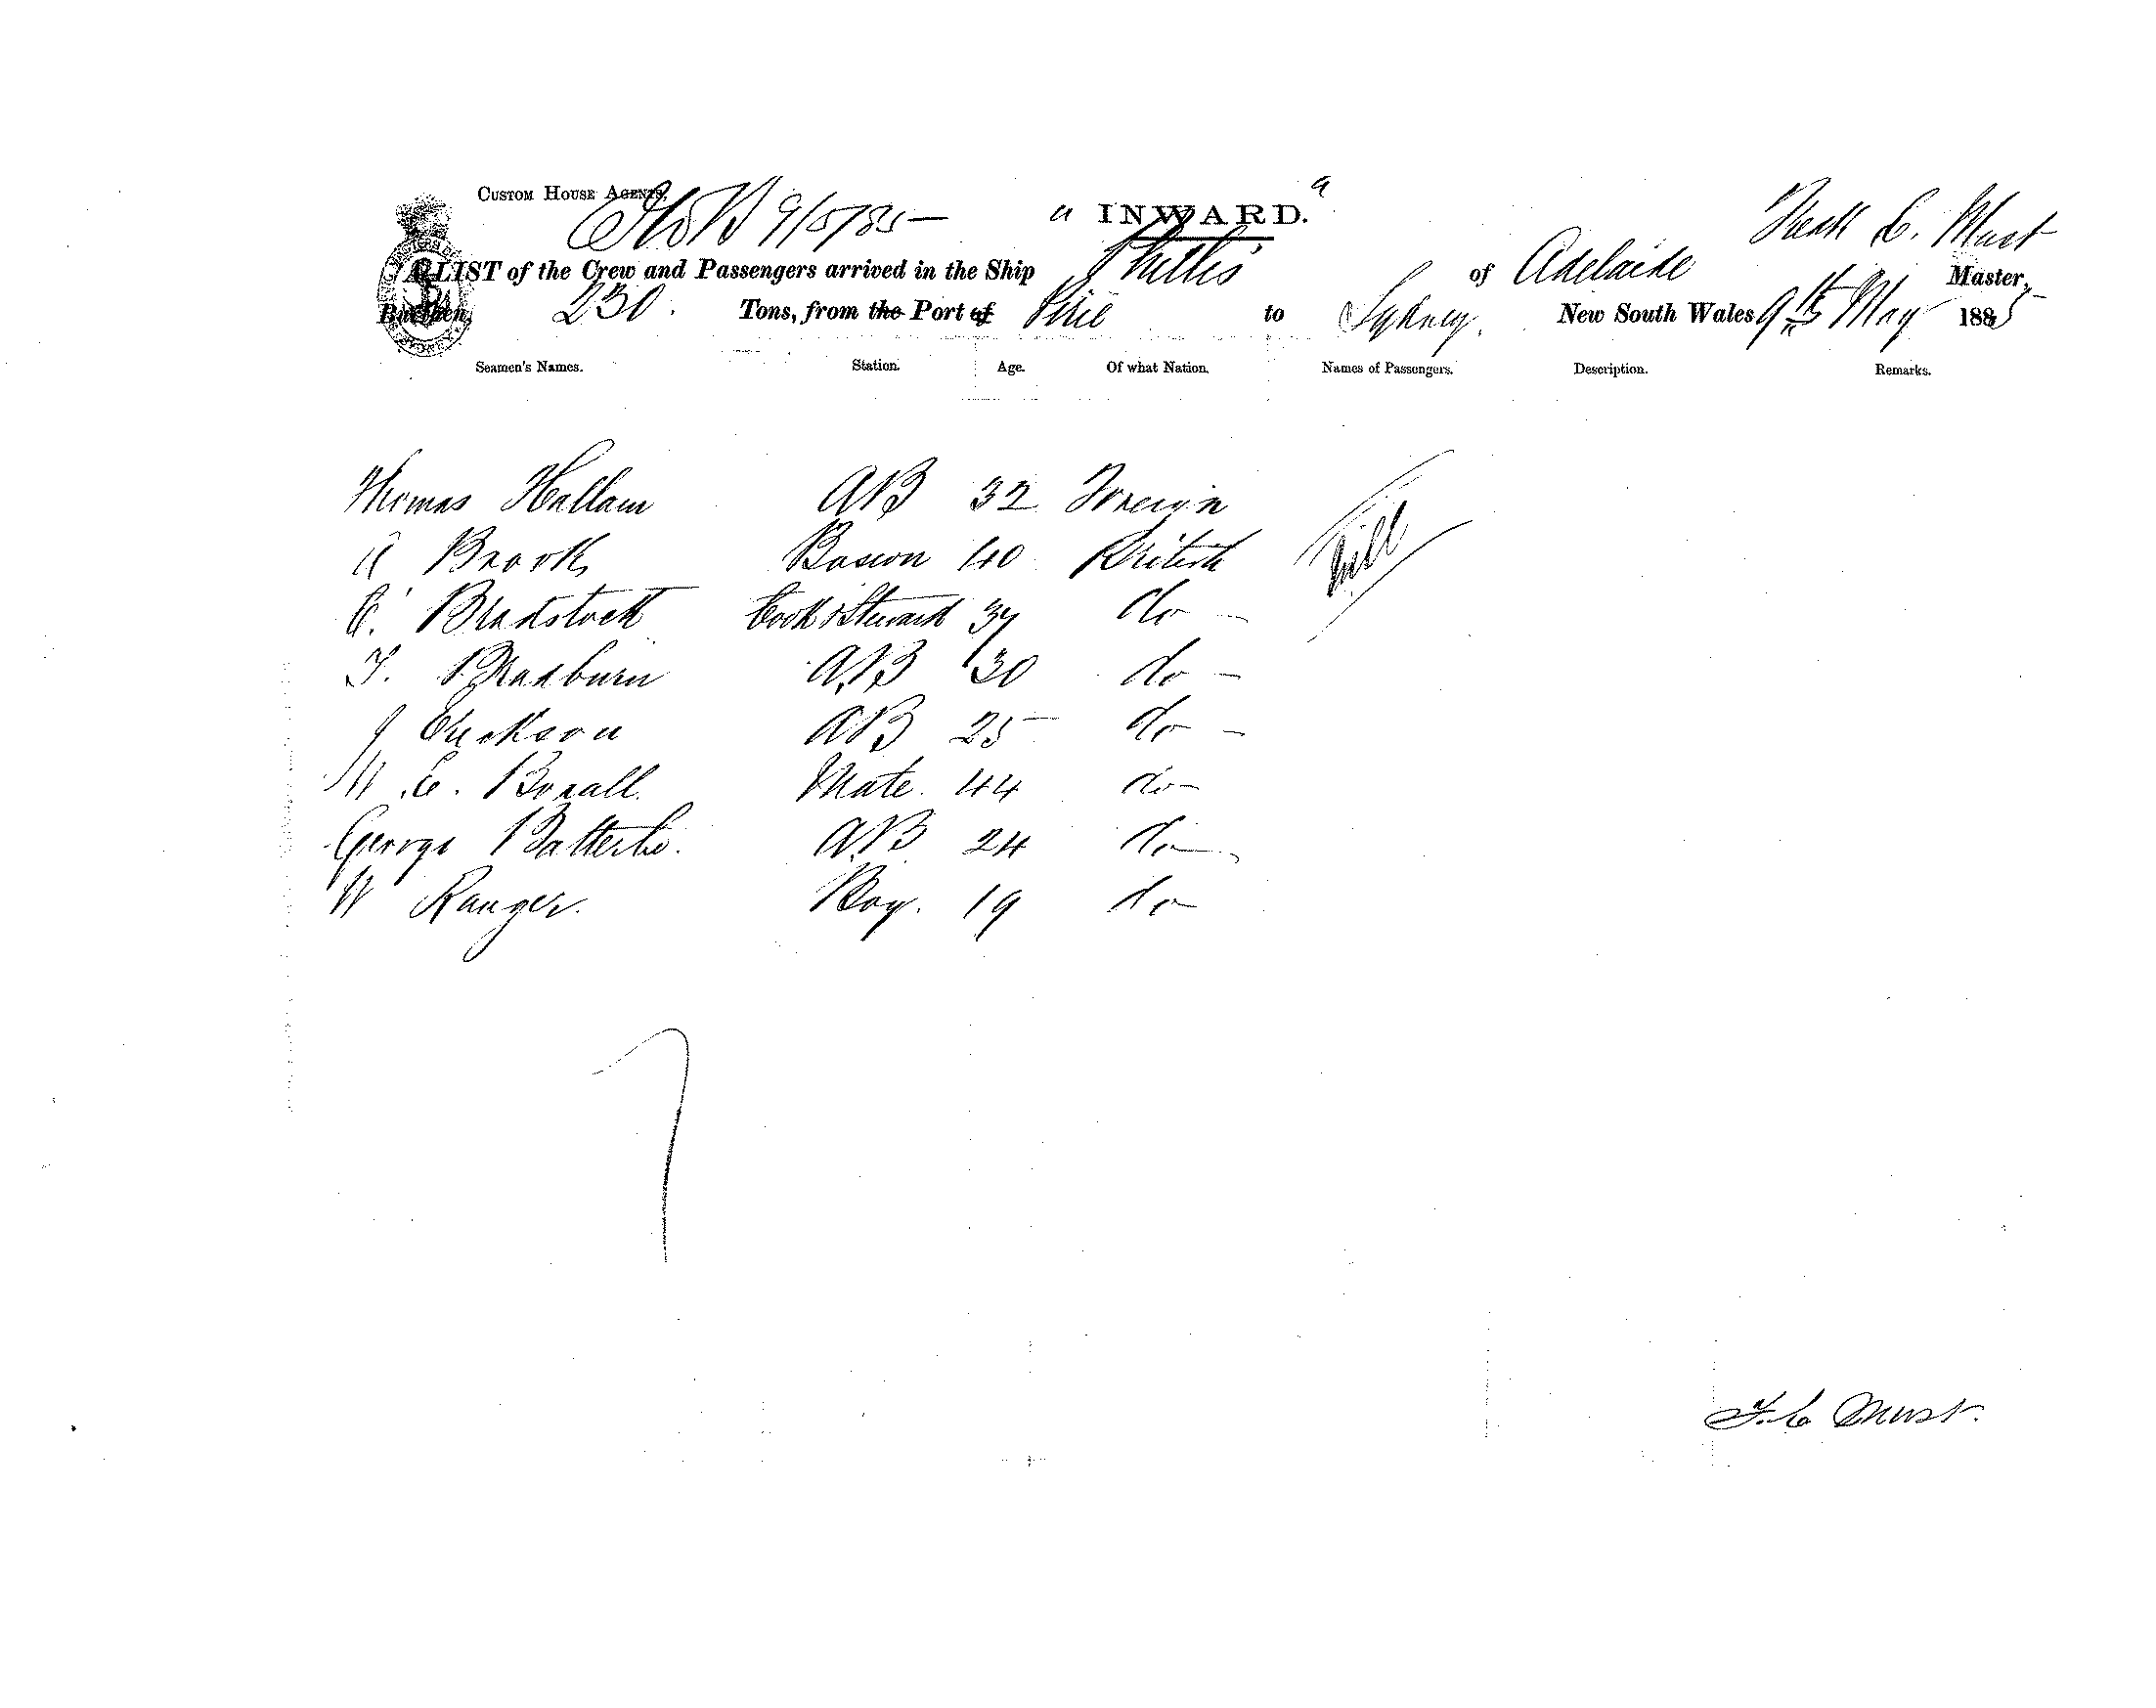 CUSTOM HOUSE AGENTS,
9/5/85
" INWARD. "
A LIST of the Crew and Passengers arrived in the Ship Phillis of Adelaide Fredk C. Must Master,
Burthen, 230. Tons, from the Port of Pirie to Sydney. New South Wales 9th May 1885
Seamen's Names. Station. Age. Of what Nation. Names of Passengers. Description. Remarks.
Thomas Hallam AB 32 Foreign
Brook Boswn 40 British
C. Bradstock Cook & Steward 37 do
T. Bradburn AB 30 do
J Erickson AB 25 do
W. C. Boxall. Mate. 44 do
George AB 24 do
W Ranger. Boy. 19 do
Nill
F. C Must.